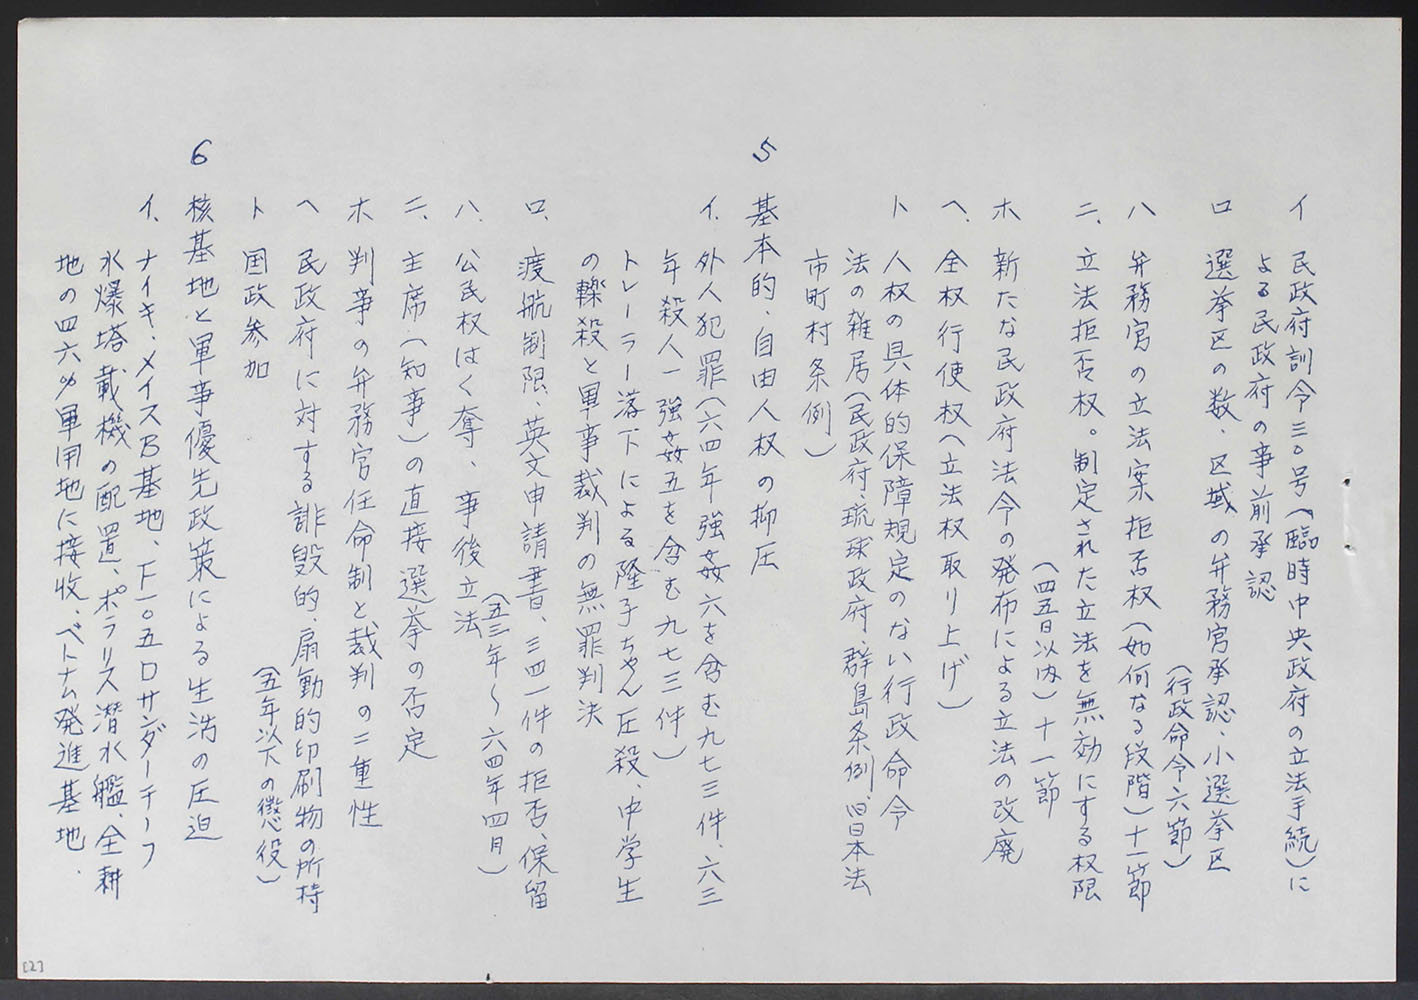 イ 民政府訓令三〇号(臨時中央政府の立法手続)に
よる民政府の事前承認
ロ 選挙区の数、区域の弁務官承認、小選挙区
(行政命令六節)
ハ 弁務官の立法案拒否权(如何なる段階)十一節
ニ、立法拒否权。制定された立法を無効にする权限
(四五日以内)十一節
ホ 新たな民政府法令の発布による立法の改廃
ヘ、全权行使权(立法权取り上げ)
ト 人权の具体的保障規定のない行政命令
法の雑居(民政府、琉球政府、群島条例、旧日本法
市町村条例)
5 基本的、自由人权の抑圧
イ、外人犯罪(六四年強姦六を含む九七三件、六三
年殺人一強姦五を含む九七三件)
トレーラー落下による隆子ちゃん圧殺、中学生
の轢殺と軍事裁判の無罪判決
ロ、渡航制限、英文申請書、三四一件の拒否、保留
(五三年〜六四年四月)
ハ、公民权はく奪、事後立法
ニ、主席(知事)の直接選挙の否定
ホ 判事の弁務官任命制と裁判の二重性
ヘ 民政府に対する誹毀的、扇動的印刷物の所持
(五年以下の懲役)
ト 国政参加
6 核基地と軍事優先政策による生活の圧迫
イ、ナイキ、メイスB基地、F一〇五ロサンダーチーフ
水爆塔載機の配置、ポラリス潜水艦、全耕
地の四六%軍用地に接收、ベトナム発進基地、
[2]